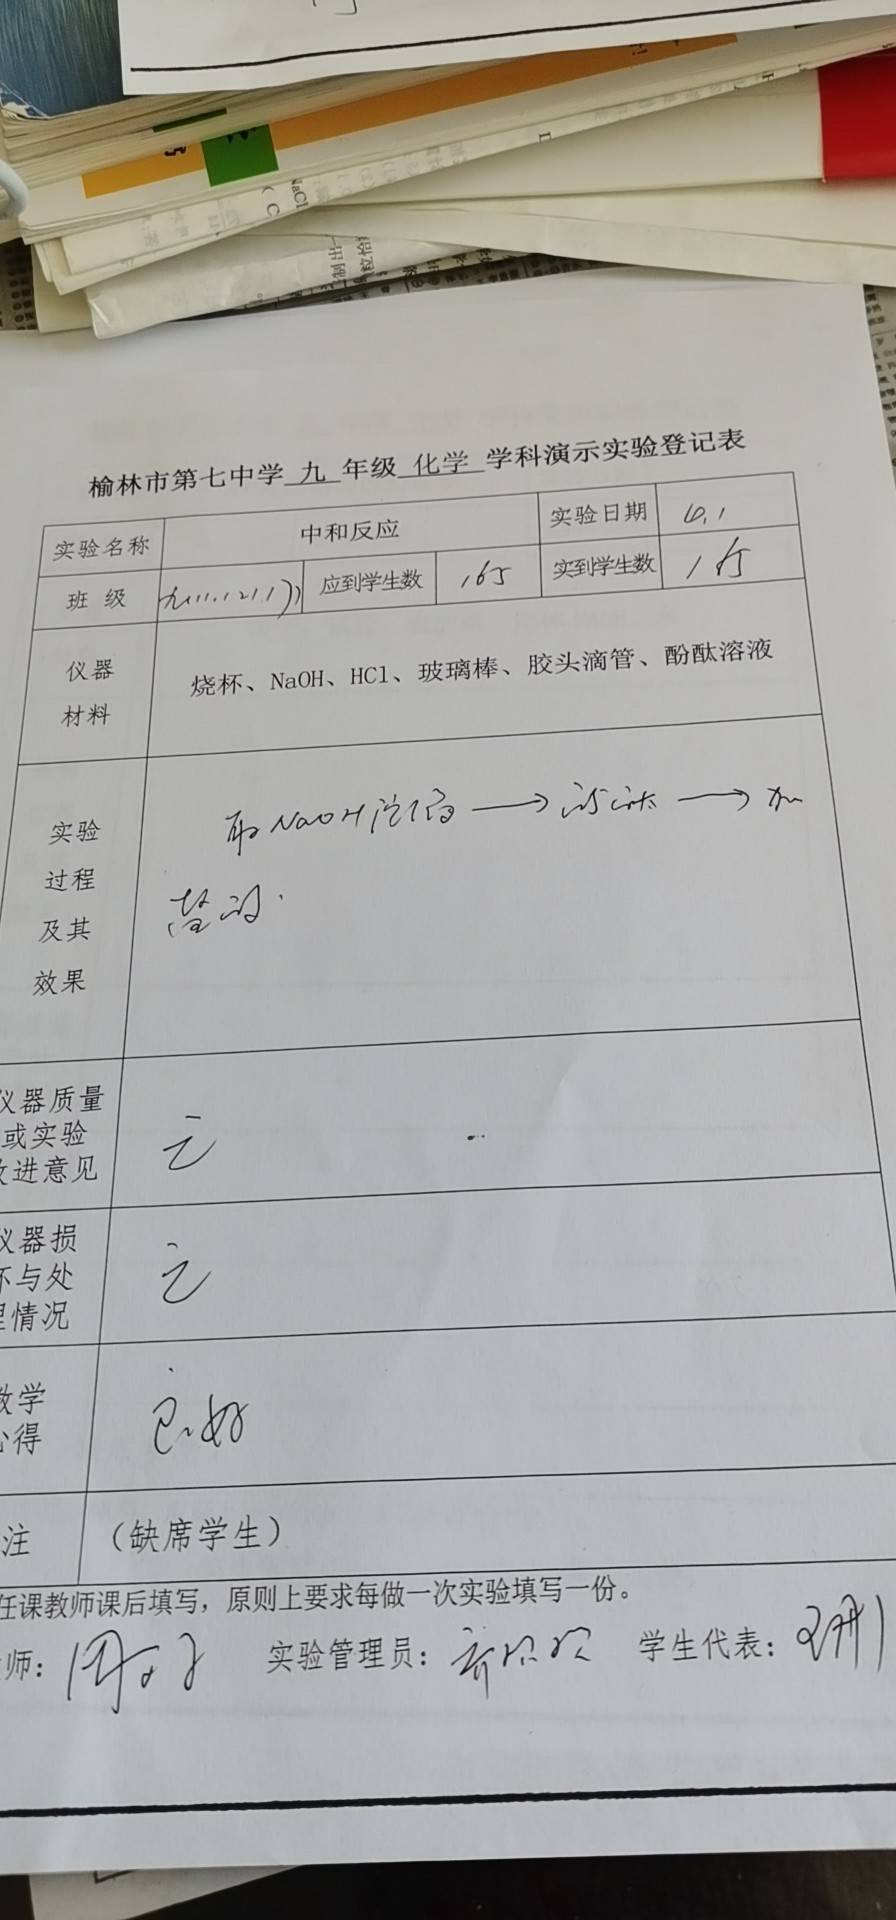 NaCl
榆林市第七中学 九 年级 化学 学科演示实验登记表
实验名称 中和反应 实验日期
班 级 应到学生数 165 实到学生数 165
仪器
材料
烧杯、NaOH、HCl、玻璃棒、胶头滴管、酚酞溶液
取NaOH溶液 → 酚酞 → 加
盐酸.
实验
过程
及其
效果
仪器质量
或实验
改进意见
无
仪器损
坏与处
理情况
无
教学
心得
良好
注 （缺席学生）
任课教师课后填写，原则上要求每做一次实验填写一份。
师： 实验管理员： 学生代表：